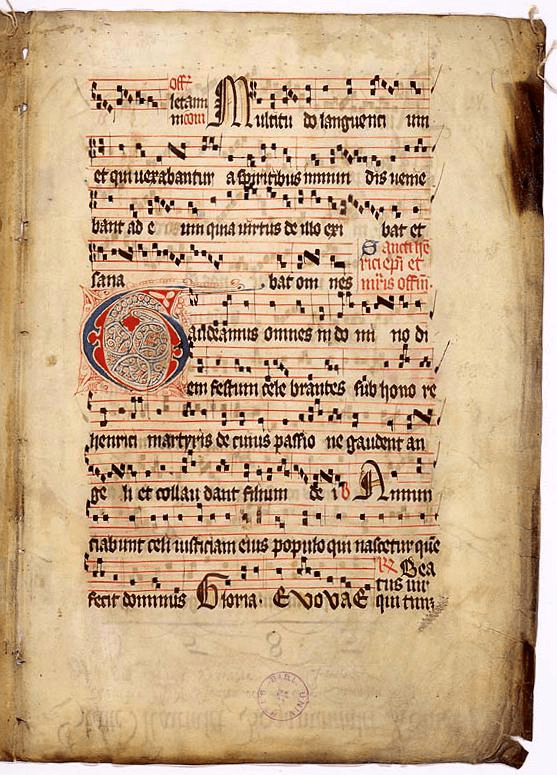 Off.
letam
ini com Multitu do languenti um
et qui vexabantur a spiritibus inmun dis venie
bant ad e um quia virtus de illo exi bat et
sana bat om nes
Sancti he
rici epi et
mris offm.
Gaudeamus omnes in do mi no di
em festum cele brantes sub hono re
henrici martyris de cuius passio ne gaudent an
ge li et collau dant filium de i V Annun
ciabunt celi iusticiam eius populo qui nascetur que
fecit dominus Gloria. EVOVAE
R Bea
tus vir
qui tim
BIBL. UNIV.